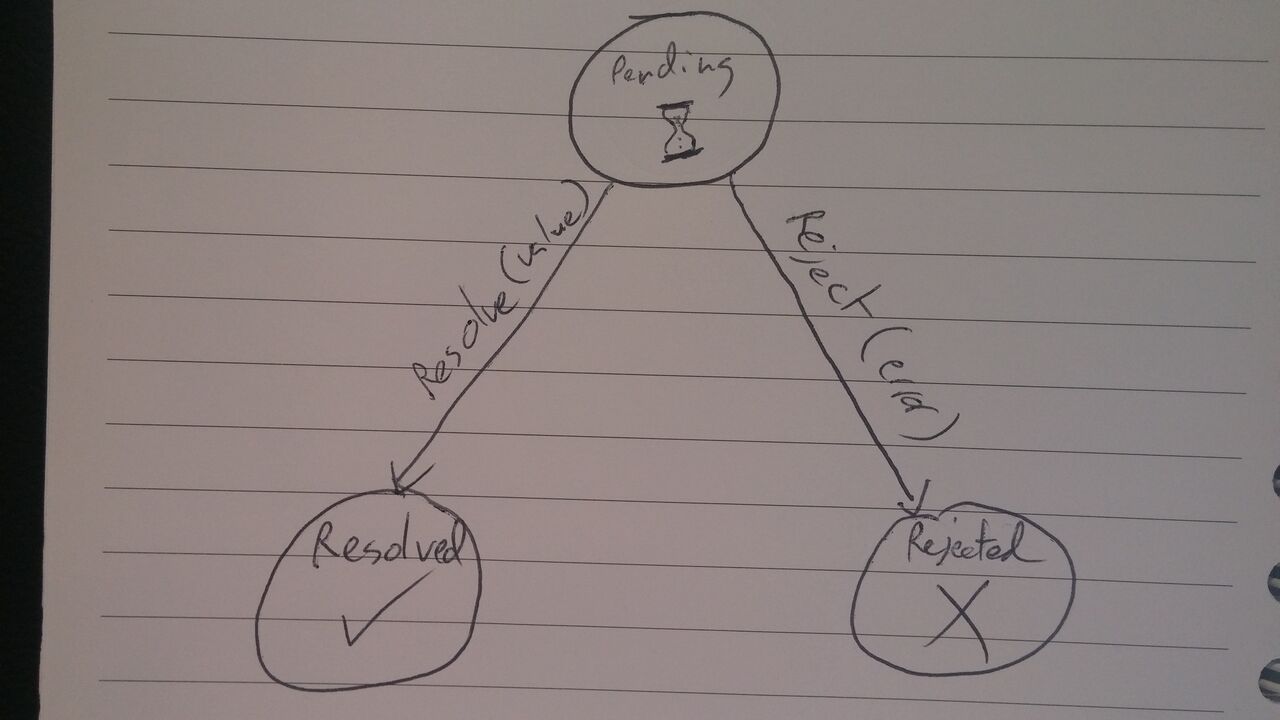 Pending
Resolve (value)
Reject (error)
Resolved
Rejected